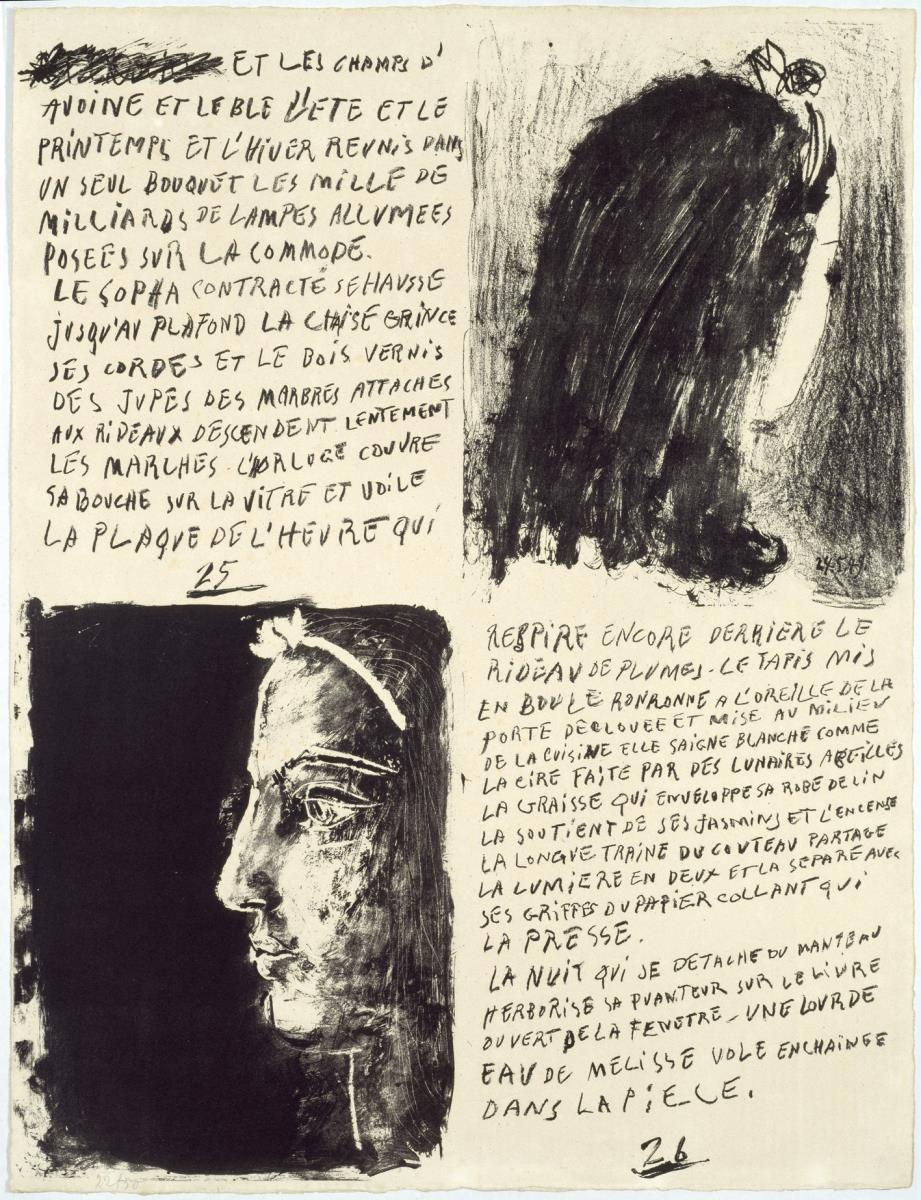 ET LES CHAMPS D'
AVOINE ET LE BLE L'ETE ET LE
PRINTEMPS ET L'HIVER REUNIS DANS
UN SEUL BOUQUET LES MILLE DE
MILLIARDS DE LAMPES ALLUMEES
POSEES SUR LA COMMODE.
LE SOPHA CONTRACTÉ SE HAUSSE
JUSQU'AU PLAFOND LA CHAISE GRINCE
SES CORDES ET LE BOIS VERNIS
DES JUPES DES MARBRES ATTACHES
AUX RIDEAUX DESCENDENT LENTEMENT
LES MARCHES L'ORLOGE COUVRE
SA BOUCHE SUR LA VITRE ET VOILE
LA PLAQUE DE L'HEURE QUI
25
24.5.49.
RESPIRE ENCORE DERRIERE LE
RIDEAU DE PLUMES - LE TAPIS MIS
EN BOULE RONRONNE A L'OREILLE DE LA
PORTE DECLOUEE ET MISE AU MILIEU
DE LA CUISINE ELLE SAIGNE BLANCHE COMME
LA CIRE FAITE PAR DES LUNAIRES ABEILLES
LA GRAISSE QUI ENVELOPPE SA ROBE DE LIN
LA SOUTIENT DE SES JASMINS ET L'ENCENSE
LA LONGUE TRAINE DU COUTEAU PARTAGE
LA LUMIERE EN DEUX ET LA SEPARE AVEC
SES GRIFFES DU PAPIER COLLANT QUI
LA PRESSE.
LA NUIT QUI SE DETACHE DU MANTEAU
HERBORISE SA PUANTEUR SUR LE LIVRE
OUVERT DE LA FENETRE - UNE LOURDE
EAU DE MELISSE VOLE ENCHAINEE
DANS LA PIECE.
26
22/50